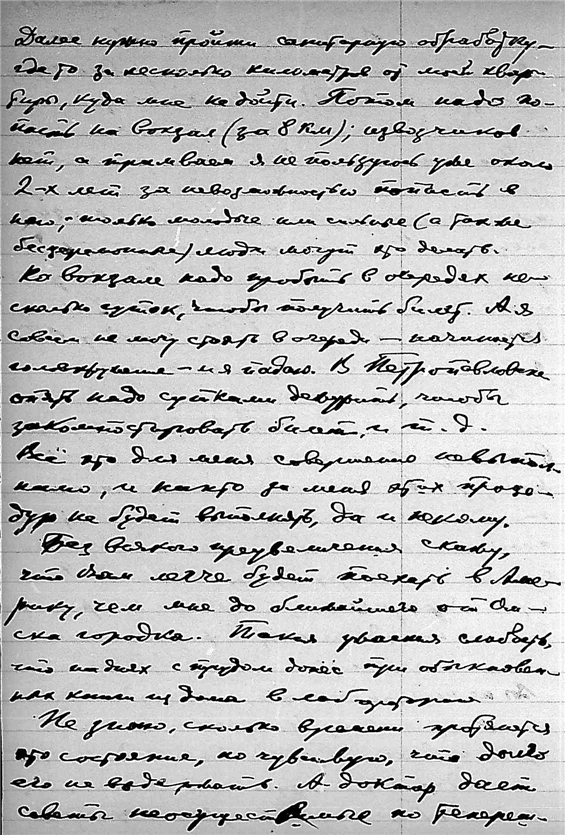 Далее нужно пройти санитарную обработку –
где то за несколько километров от моей квар-
тиры, куда мне не дойти. Потом надо по-
пасть на вокзал (за 8 км); извозчиков
нет, а трамваем я не пользуюсь уже около
2-х лет за невозможностью попасть в
него; только молодые или сильные (а также
бесцеремонные) люди могут это делать.
На вокзале надо пробыть в очередях не-
сколько суток, чтобы получить билет. А я
совсем не могу стоять в очереди – начинается
головокружение – и я падаю. В Петропавловске
опять надо сутками дежурить, чтобы
закомпостировать билет, и т. д.
Всё это для меня совершенно невыпол-
нимо, и никто за меня этих проце-
дур не будет выполнять, да и некому.
Без всякого преувеличения скажу,
что Вам легче будет поехать в Аме-
рику, чем мне до ближайшего от Ом-
ска городка. Такая ужасная слабость,
что на днях с трудом донёс три обыкновен-
ных книги из дома в лабораторию
Не знаю, сколько времени протянется
это состояние, но чувствую, что долго
его не выдержать. А доктор дает
советы неосуществимые по теперешн-